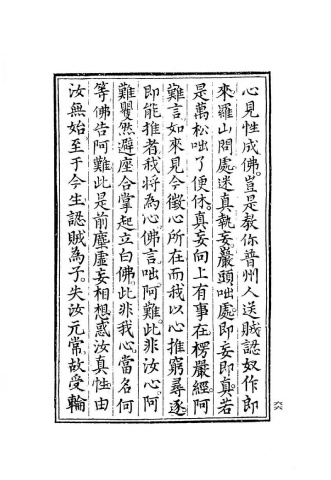 心見性成佛。豈是教你普州人送賊認奴作郎
來羅山問處迷真執妄巖頭咄處即妄即真。若
是萬松咄了便休。真妄向上有事在楞嚴經。阿
難言。如來見今徵心所在而我以心推窮尋逐
即能推者我將為心。佛言。咄阿難。此非汝心。阿
難矍然避座合掌起立白佛。此非我心。當名何
等佛告阿難此是前塵虛妄相想。惑汝真性。由
汝無始至于今生認賊為子。失汝元常。故受輪
六六